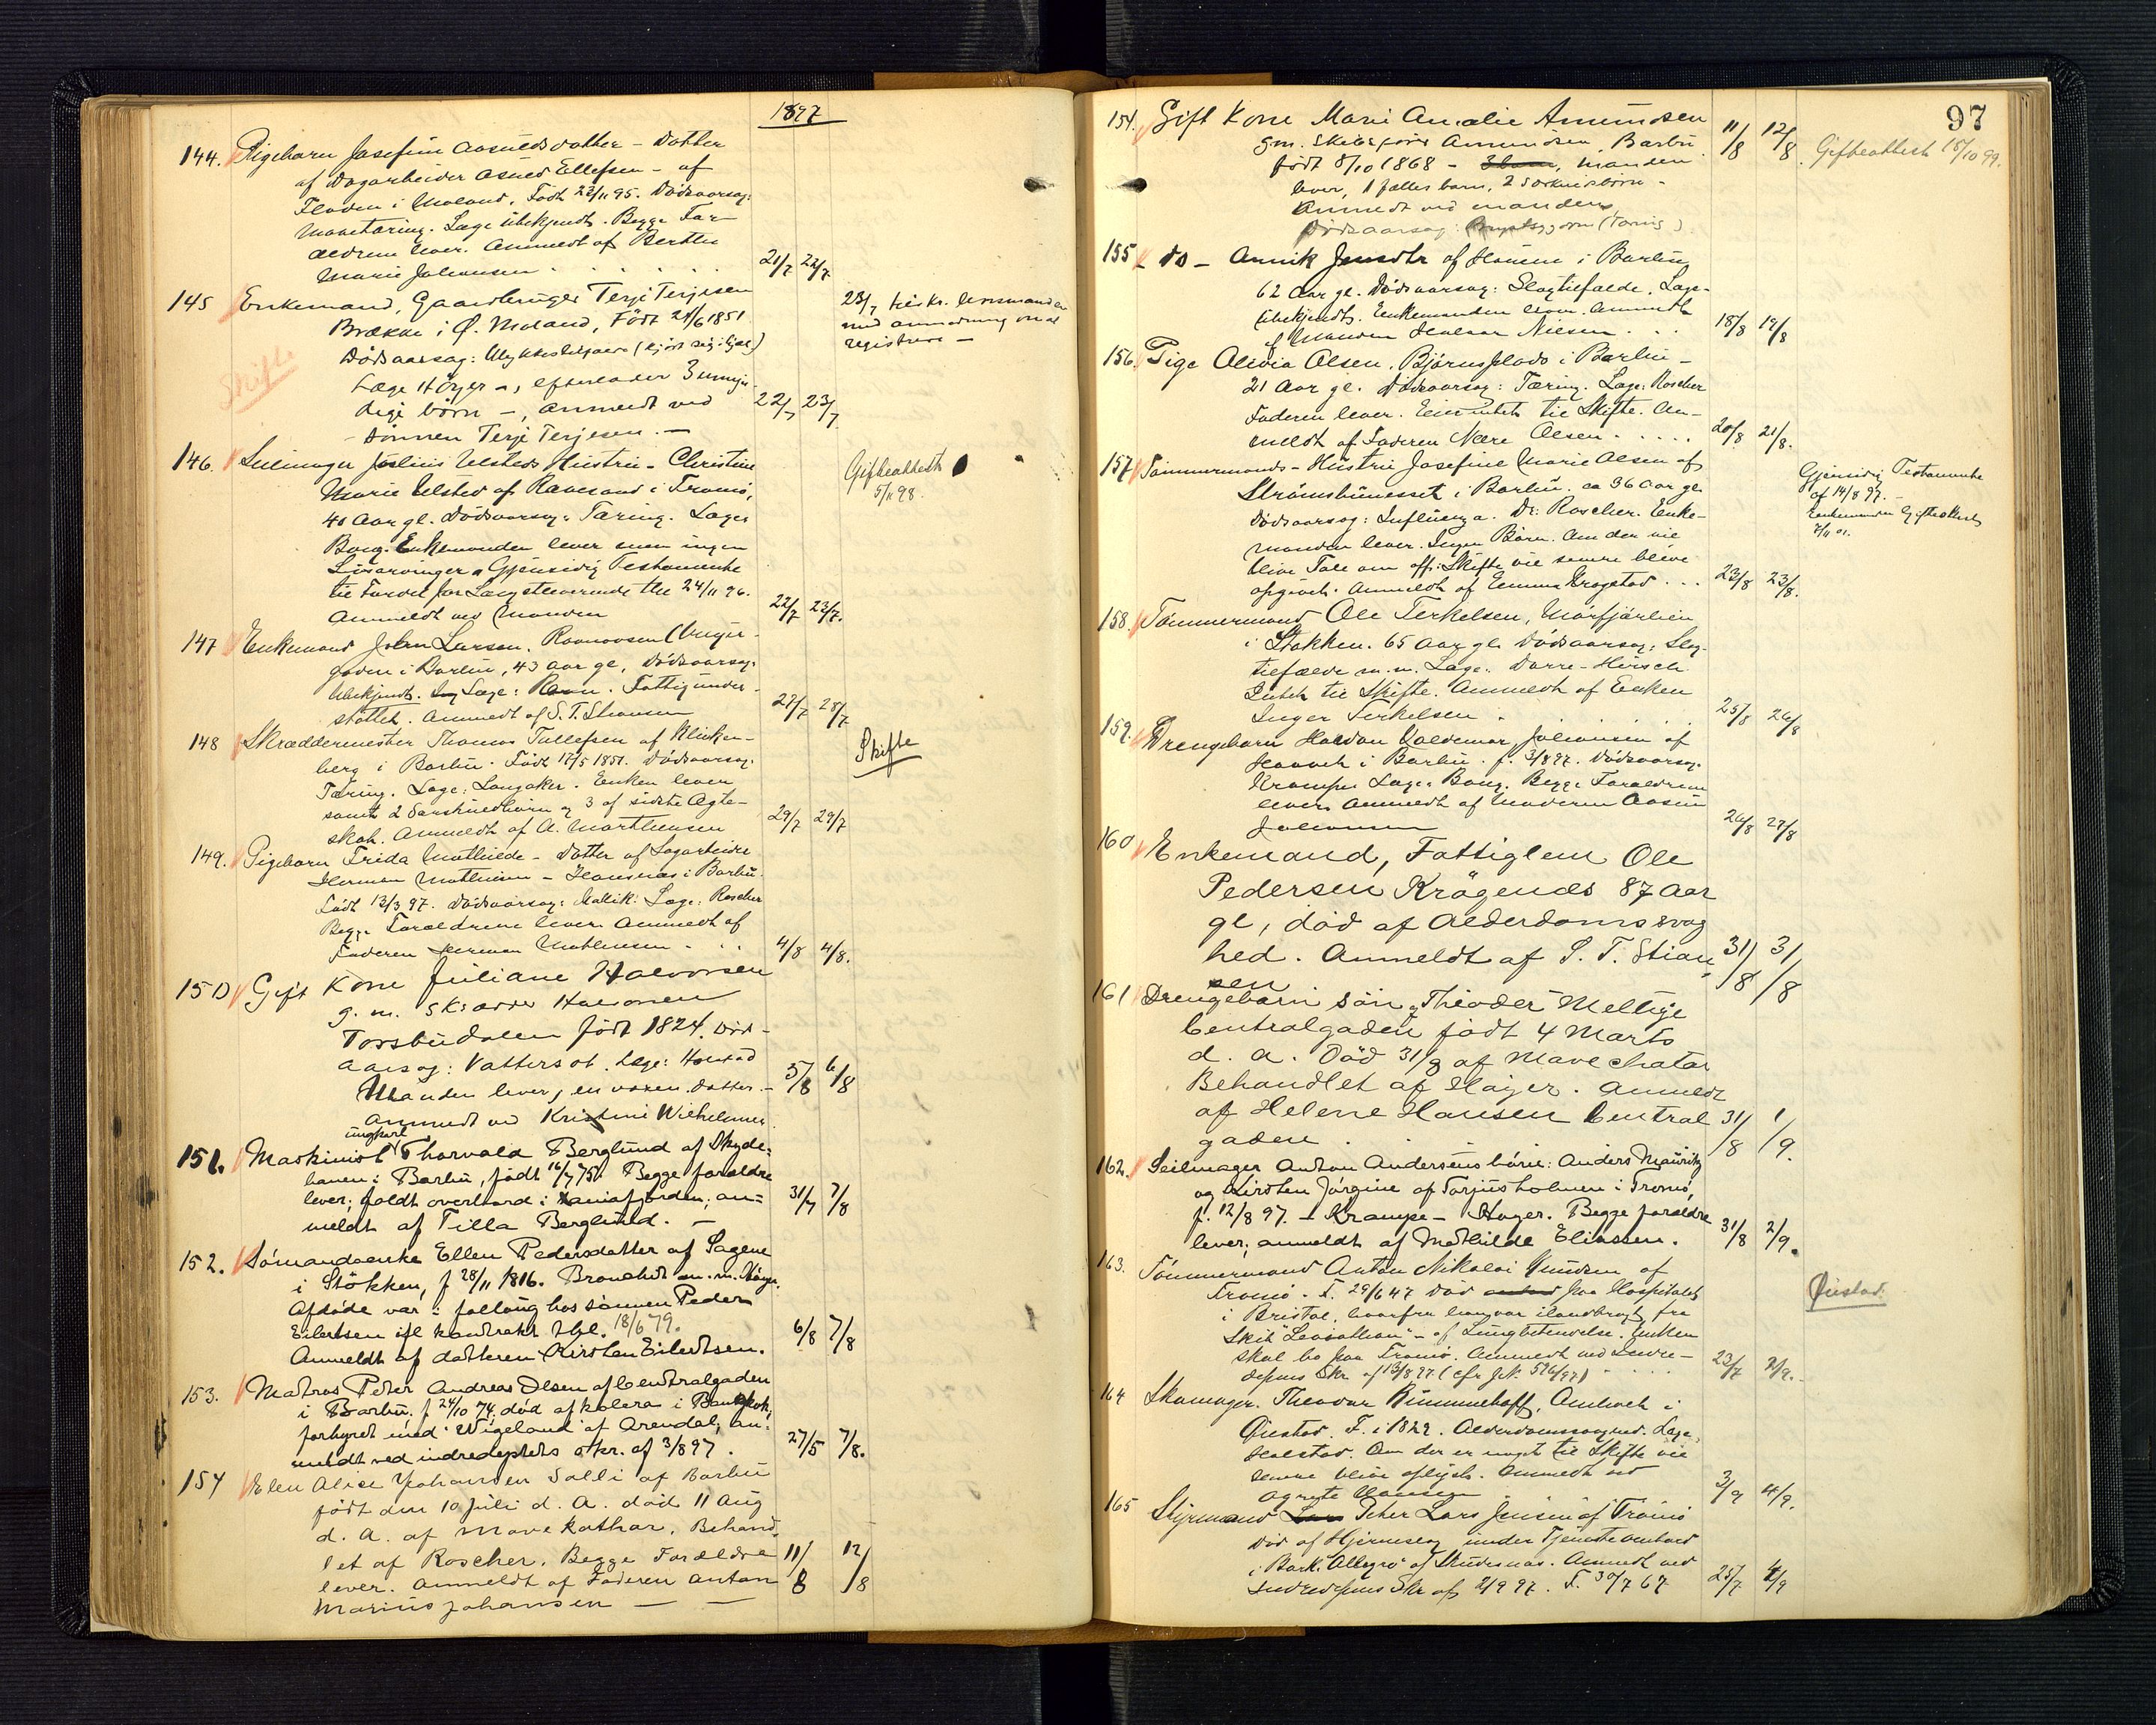 1897
144. Pigebarn Josefine Aasuldsdatter - Datter
af Dagarbeider Asuld Ellefsen - af
Fladen i Moland. Født 23/11 95. Dødsaarsag:
Mavetæring. Læge ubekjendt. Begge For-
ældrene lever. Anmeldt af Berthe
Marie Johansen . . . . . 21/7 22/7
145 Enkemand, Gaardbruger Terje Terjesen
Brække i Ø. Moland, Født 24/6 1851
Dødsaarsag: Ulykkestilfælde (kjørt sig ihjæl)
Læge Höyer -, efterlader 3 umyn-
dige börn -, anmeldt ved 22/7 23/7
- sönnen Terje Terjesen. -
Skifte
23/7 tilskr. lensmanden
med anmodning om at
registrere -
146. Seilmager Julius Ulsteds Hustru - Christine
Marie Ulsted af Ravesand i Tromö,
40 Aar gl. Dödsaarsag: Tæring. Læge
Bong. Enkemanden lever men ingen
Livsarvinger. Gjensidig Testamente
til Fordel for Længstlevende thl 24/11 96.
Anmeldt ved Manden 22/7 23/7.
Gifteattest
5/11 98.
147 Enkemand John Larsen. Ravnaasen (Vinger-
gaden i Barbu, 43 aar gl, Dödsaarsag:
Ubekjendt. Læge: Ravn. Fattigunder-
støttet. Anmeldt af S. T. Stiansen 27/7 28/7
148 Skræddermester Thomas Tellefsen af Klinken-
berg i Barbu. Född 17/5 1851. Dödsaarsag:
Tæring. Læge: Langaker. Enken lever
samt 2 Særskuldbörn og 3 af sidste Ægte-
skab. Anmeldt af A. Marthinsen 29/7 29/7
Skifte
149. Pigebarn Frida Mathilde - Datter af Dagarbeider
Herman Mathisen - Hansnæs i Barbu.
Født 13/3 97. Dödsaarsag: Kolik. Læge: Roscher
Begge Forældrene lever. Anmeldt af
Faderen Herman Mathisen . . . 4/8 4/8.
150 Gift Kone Juliane Halvorsen
g. m. Skræder Halvorsen
Torsbudalen född 1824. Död-
aarsag: Vattersot. Læge: Holstad
Manden lever, en voxen datter - 5/8 6/8
Anmeldt ved Kristine Wilhelmsen
151. Maskinist ungkarl Thorvald Berglund af Skyde-
banen i Barbu, født 16/7 75. Begge forældre
lever; faldt overbord i Xaniafjorden; an- 31/7 7/8
meldt af Tilla Berglund. -
152. Sømandsenke Ellen Pedersdatter af Sagene
i Stökken, f 28/11 1816. Bronchit m. m. Høyer.
Afdøde var i follaug hos sønnen Peder
Eilertsen ifl kontrakt thgl. 18/6 79. 6/8 7/8
Anmeldt af datteren Kirsten Eilertsen.
153. Matros Peter Andreas Olsen af Centralgaden
i Barbu. f 24/10 74, død af kolera i Bangkok;
forhyret med "Wigeland" af Arendal; an-
meldt ved indredeptets skr. af 3/8 97. 27/5 7/8.
154 Elen Alise Johansen Solli af Barbu
født den 10 Juli d. A. död 11 Aug
d. A. af Mavekathar. Behand-
let af Roscher. Begge Forældre 11/8 12/8
lever. Anmeldt af Faderen Anton
Marius Johansen - -
97
154. Gift Kone Marie Amalie Amundsen
gm. Skibsfører Amundsen, Barbu 11/8 12/8.
født 8/10 1868 - manden
lever, 1 fælles barn, 2 særkuldsbörn -
Anmeldt ved manden
Dödsaarsag: (Tæring)
Gifteattest 15/10 99.
155 - do - Annik Jensdtr af Hounum i Barbu
62 Aar gl. Dødsaarsag: Slagtilfælde. Læge
Ubekjendt. Enkemanden lever. Anmeldt
af Manden Halvor Nilsen . . . 18/8 19/8
156. Pige Olivia Olsen, Bjørnsplads i Barbu -
21 Aar gl. Dødsaarsag: Tæring. Læge: Roscher
Faderen lever. Eier intet til Skifte. An-
meldt af Faderen Nære Olsen . . . . 20/8 21/8.
157 Tømmermands-Hustru Josefine Marie Olsen af
Strømsbunesset i Barbu. ca 36 Aar gl.
Dødsaarsag: Influenza. Dr: Roscher. Enke-
manden lever. Ingen Börn. Om der vil
blive Tale om off: Skifte vil senere blive
opgivet. Anmeldt af Emma Krogstad . . . 23/8 23/8.
Gjensidig Testamente
af 14/8 97. -
Enkemanden Gifteattest
7/11 01.
158. Tømmermand Ole Terkelsen, Mørfjærlien
i Stokken. 65 Aar gl. Dødsaarsag: Slag-
tilfælde m. m. Læge: Darre-Hirsch.
Intet til Skifte. Anmeldt af Enken
Inger Terkelsen . . . . 25/8 26/8
159. Drengebarn Haldan Valdemar Johansen af
Haavet i Barbu. f. 3/8 97. Dødsaarsag:
Krampe Læge: Bong. Begge Forældrene
lever. Anmeldt af Moderen Aasine
Johansen 26/8 27/8
160 Enkemand, Fattiglem Ole
Pedersen Krøgenæs 87 Aar
gl, död af Alderdomssvag
hed. Anmeldt af S. T. Stian 31/8 31/8
sen
161 Drengebarn sön af Theoder Mellige
Centralgaden født 4 Marts
d. a. Död 31/8 af Mavechatar
Behandlet af Høyer. Anmeldt
af Helene Hansen Central 31/8 1/9.
gaden .
162. Seilmager Anton Andersens börn: Anders Mauritz
og Kirsten Jørgine af Torjusholmen i Tromö,
f. 12/8 97. - Krampe - Høyer. Begge forældre
lever; anmeldt af Mathilde Eliassen. 31/8 2/9.
163. Tømmermand Anton Nikolai Knudsen af
Tromö. F. 29/6 47 død paa Hospitalet
i Bristol, hvorfra han var ilandbragt fra
Skib "Leviathan" - af Lungbetændelse. Enken
skal bo paa Tromö. Anmeldt ved Indre-
depms Skr. af 13/8 97. (cfr J.N. 596/97) . . . 23/7 2/9.
Øiestad.
164 Skomager. Theodor Rimmelhoff, Amtvelt i
Øiestad. F. i 1822. Alderdomssvaghed. Læge:
Holstad. Om der er noget til Skifte vil
senere blive oplyst. Anmeldt ved
Agnete Hansen 3/9 4/9.
165 Styrmand Peter Lars Jensen af Tromö
Död af Hjerneslag under Tjeneste ombord
i Bark "Allegro" af Skudesnæs. Anmeldt ved
Indredepms Skr af 2/9 97. F. 30/7 67 25/7 4/9